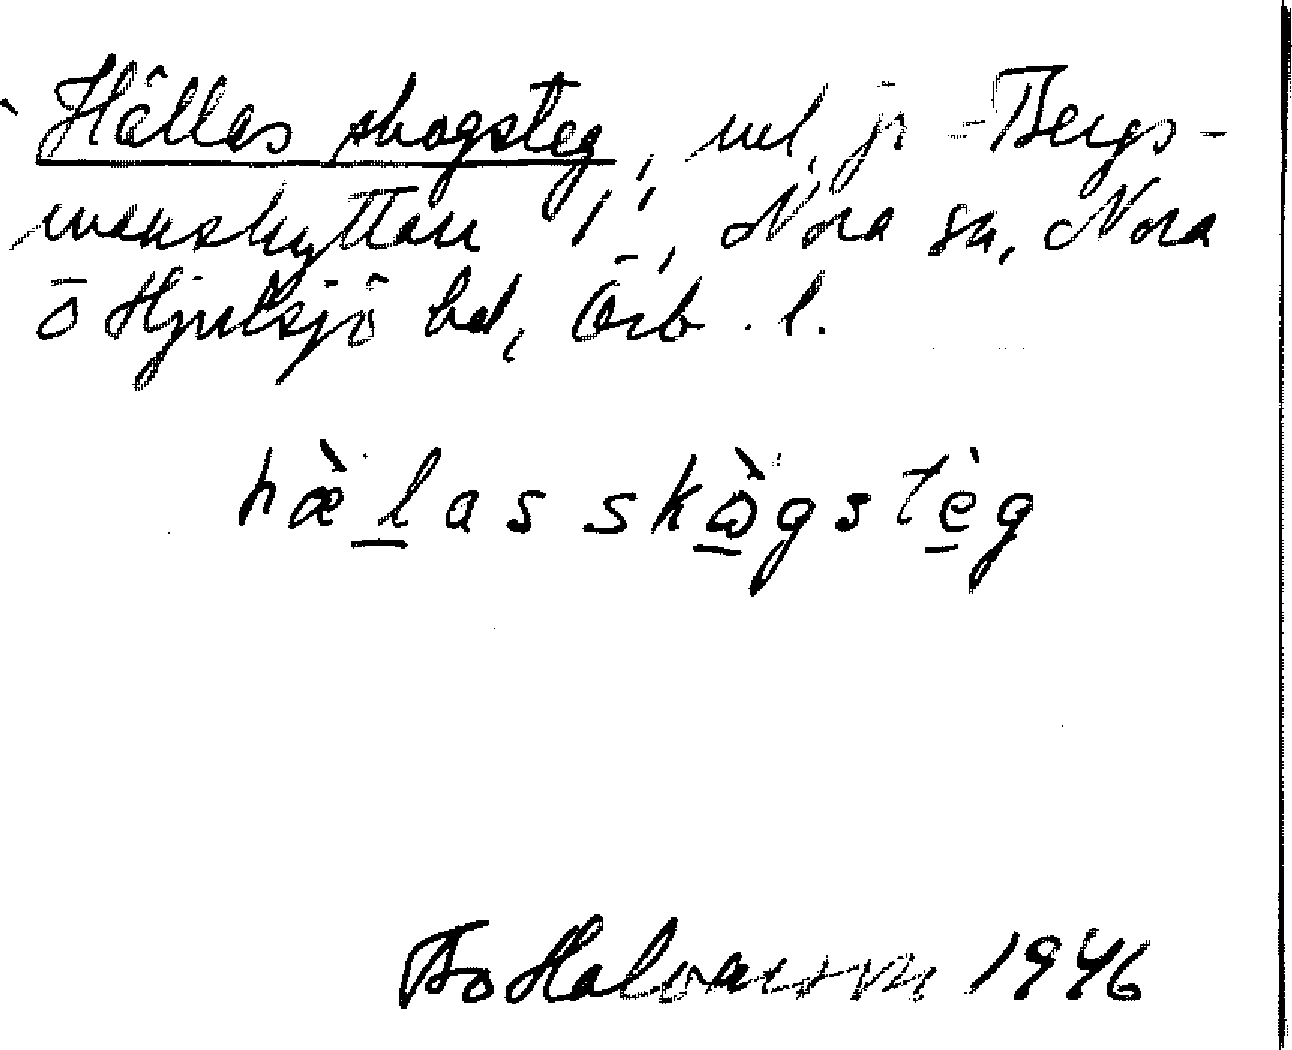 Hällas skogsteg, uel. jr Bergs-
manshyttan 1¹, Nora sn, Nora
o Hjulsjö bd, Örb. l.
hæ̀las skògstèg
Bo Halvarsson 1946